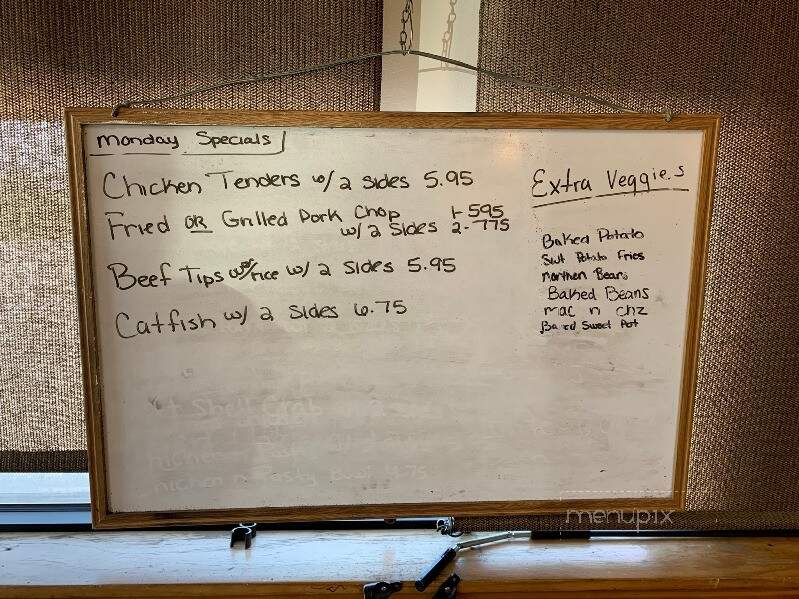 Monday Specials
Chicken Tenders w/ 2 sides 5.95
Fried OR Grilled Pork Chop 1- 595
w/ 2 Sides 2- 775
Beef Tips over rice w/ 2 sides 5.95
Catfish w/ 2 sides 6.75
Shell Crab
Extra Veggies
Baked Potato
Swt Potato Fries
Northen Beans
Baked Beans
mac n chz
Baked Sweet Pot
menupix